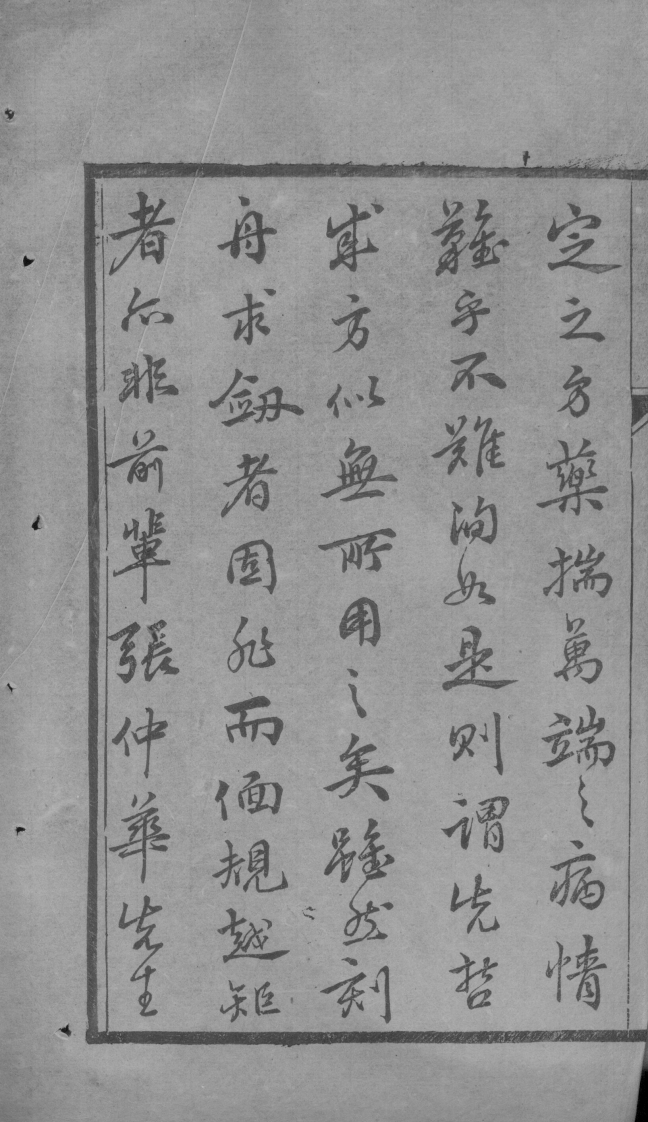 定之方藥揣萬端之病情
難乎不難洵如是則謂先哲
成方似無所用之矣雖然刻
舟求劔者固非而偭規越矩
者亦非前輩張仲華先生